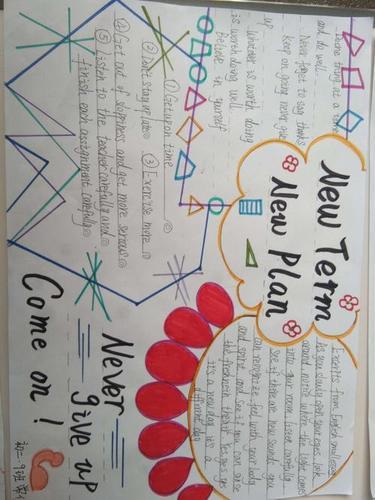 one thing at a time
and do well
Never forget to say thanks
keep on going never give
up
Whatever is worth doing
is worth doing well.
Believe in yourself
New Term
New Plan
① Get up on time
② Don't stay up late
③ Exercise more
④ Get out of sloppiness and get more serious
⑤ Listen to the teacher carefully and
finish each assignment carefully
Excerpts from English
As you slowly open your eyes, look
around, notice where the light comes
into your room; listen carefully,
see if there are new sounds you
can recognize; feel with your body
and spirit, and see if you can sense
the freshness in the air. Yes, yes, yes
it's a new day, it's a
different day
Never
give up
Come on!